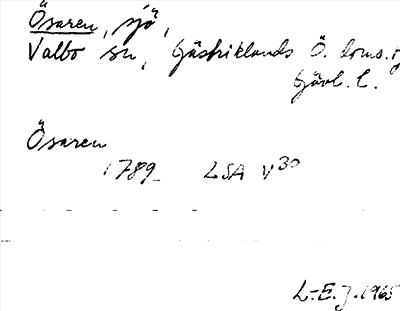 Ösaren, sjö,
Valbo sn, Gästriklands Ö. doms.
Gävl. l.
Ösaren
1789 LSA V30
L-E. J. 1965